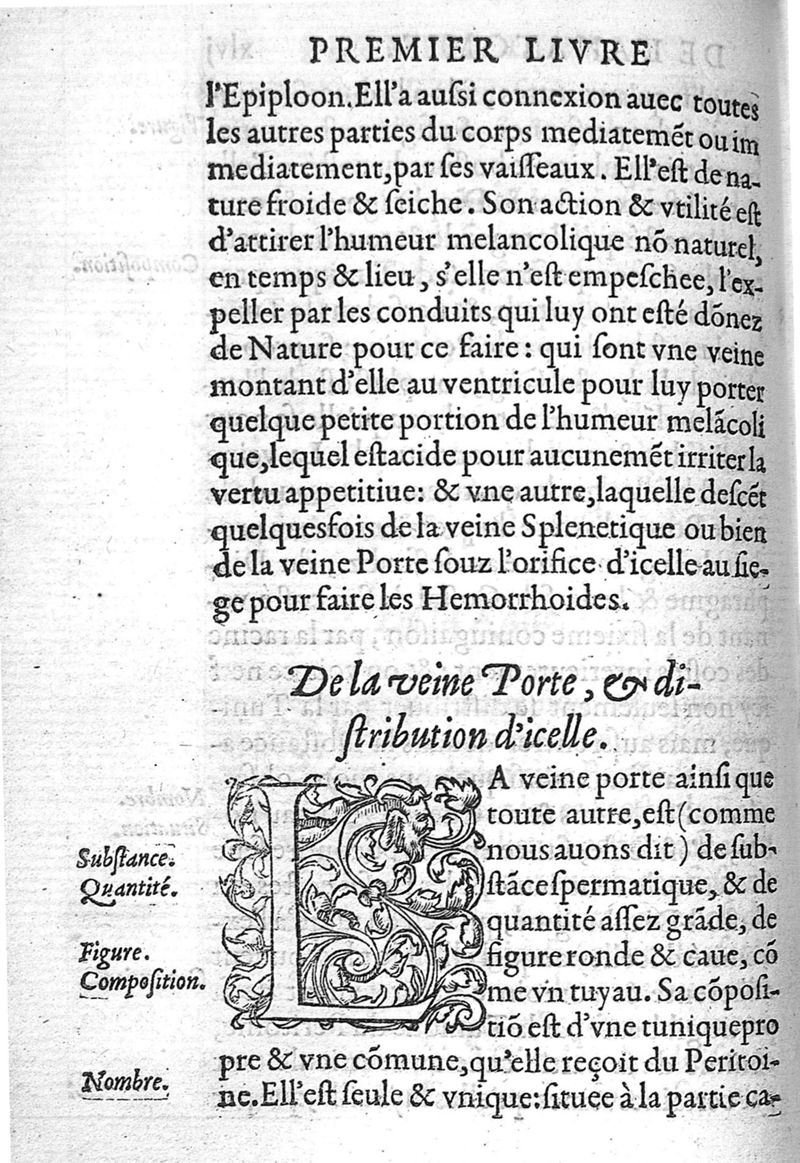 PREMIER LIVRE
l'Epiploon. Ell'a auſsi connexion auec toutes
les autres parties du corps mediatemẽt ou im
mediatement, par ſes vaiſſeaux. Ell'eſt de na-
ture froide & ſeiche. Son action & vtilité eſt
d'attirer l'humeur melancolique nõ naturel,
en temps & lieu, s'elle n'eſt empeſchee, l'ex-
peller par les conduits qui luy ont eſté dõnez
de Nature pour ce faire: qui ſont vne veine
montant d'elle au ventricule pour luy porter
quelque petite portion de l'humeur melãcoli
que, lequel eſt acide pour aucunemẽt irriter la
vertu appetitiue: & vne autre, laquelle deſcẽt
quelquesfois de la veine Splenetique ou bien
de la veine Porte ſouz l'orifice d'icelle au ſie-
ge pour faire les Hemorrhoides.
De la veine Porte, & di-
ſtribution d'icelle.
LA veine porte ainſi que
toute autre, eſt (comme
nous auons dit) de ſub-
Subſtance.
ſtãce ſpermatique, & de
Quantité.
quantité aſſez grãde, de
figure ronde & caue, cõ
Figure.
me vn tuyau. Sa cõpoſi-
Compoſition.
tiõ eſt d'vne tunique pro
pre & vne cõmune, qu'elle reçoit du Peritoi-
Nombre.
ne. Ell'eſt ſeule & vnique: ſituee à la partie ca-